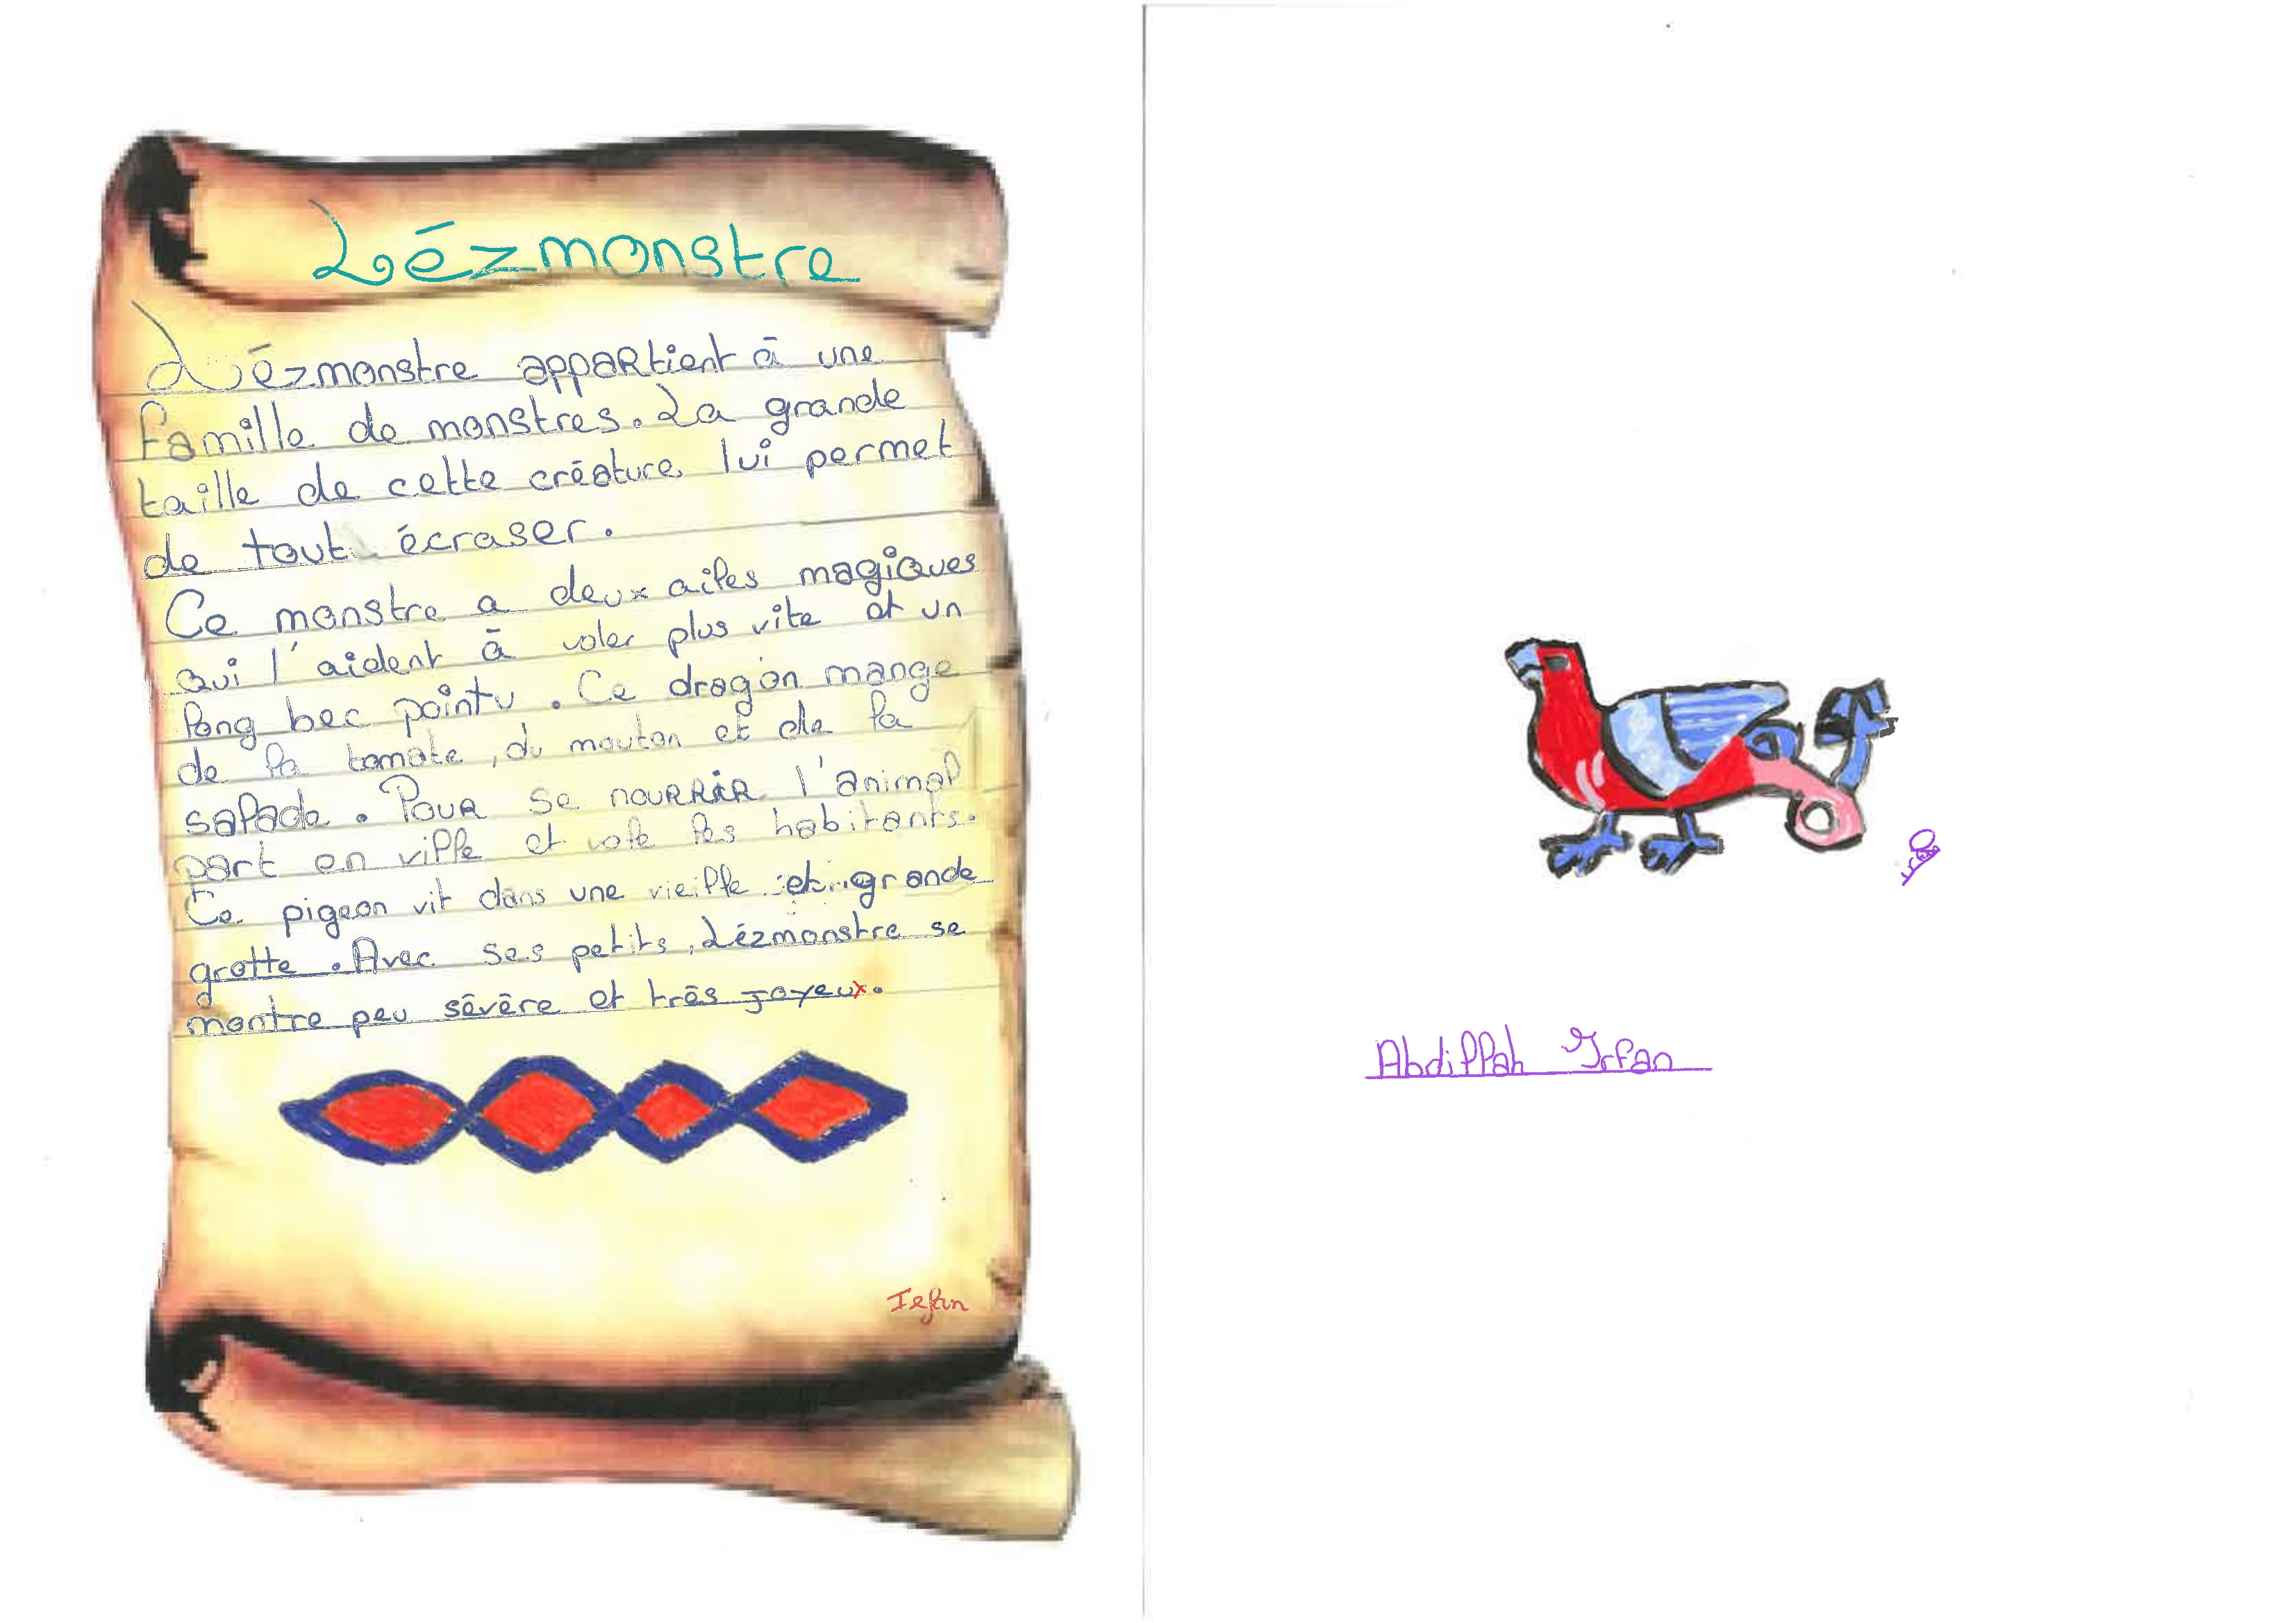 Lézmonstre
Lézmonstre appartient à une
famille de monstres. La grande
taille de cette créature lui permet
de tout écraser.
Ce monstre a deux ailes magiques
qui l'aident à voler plus vite et un
long bec pointu. Ce dragon mange
de la tomate, du mouton et de la
salade. Pour se nourrir l'animal
part en ville et vole les habitants.
Ce pigeon vit dans une vieille et grande
grotte. Avec ses petits, Lézmonstre se
montre peu sévère et très joyeux.
Irfan
Abdillah Irfan